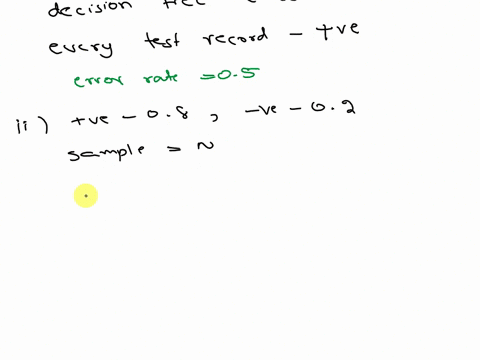 decision
every test record - +ve
error rate = 0.5
ii) +ve - 0.8, -ve - 0.2
sample = N